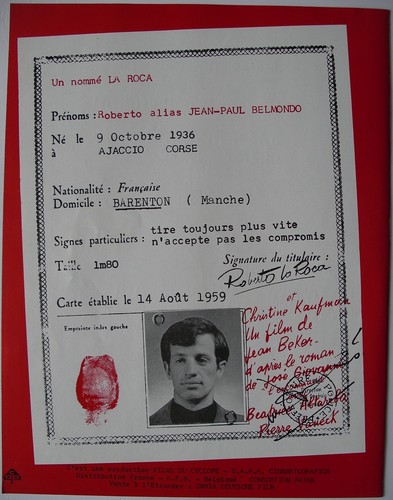 Un nommé LA ROCA
Prénoms : Roberto alias JEAN-PAUL BELMONDO
Né le 9 Octobre 1936
à AJACCIO CORSE
Nationalité : Française
Domicile : BARENTON ( Manche)
Signes particuliers : tire toujours plus vite
n'accepte pas les compromis
Taille 1m80
Signature du titulaire :
Roberto la Roca
Carte établie le 14 Août 1959
Empreinte index gauche
et
Christine Kaufman
Un film de
Jean Beker
d'après le roman
de José Giovanni
Beatrice Altariba
Pierre Vaneck
C'est une production FILMS DU CYCLOPE - CINEMATOGRAFICA
Distribution France - Belgique
Vente à l'Etranger :